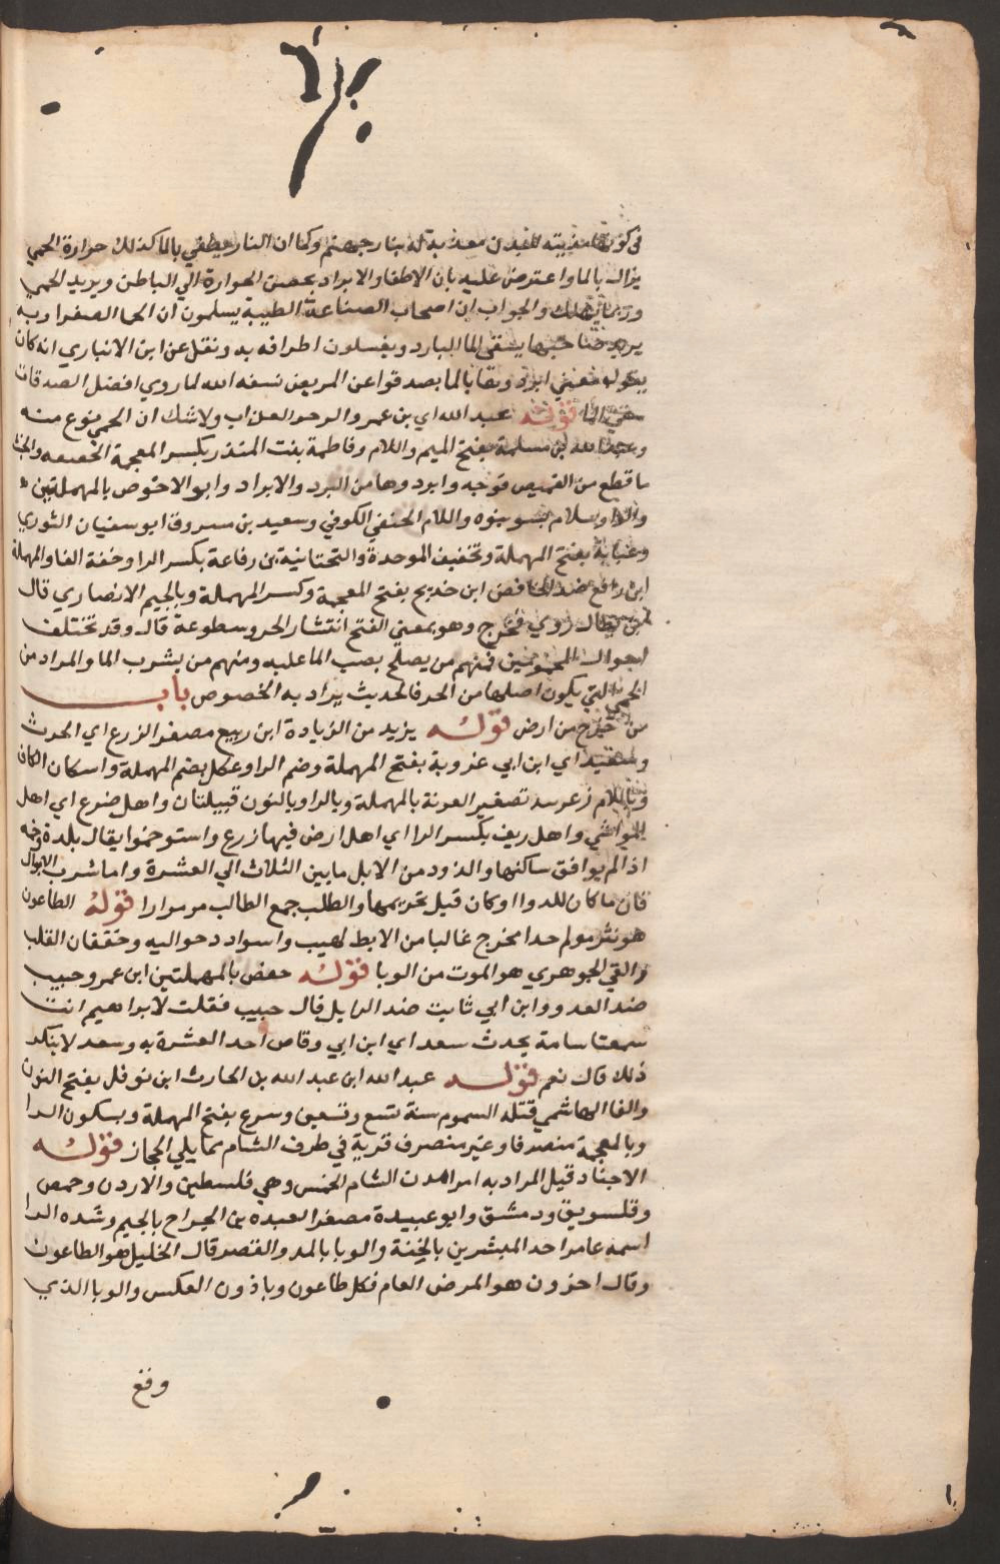 في كونها مذيبة للبدن معذبة له بنار جهنم وكما ان النار يطفي بالما كذلك حرارة الحمي
يزال بالما واعترض عليه بان الاطفا والابراد يحصن الحوارة الي الباطن ويزيد الحمي
وربما يهلك والجواب ان اصحاب الصناعة الطيبة يسلمون ان الحما الصفراوية
صاحبها يسقي الما البارد ويغسلون اطرافه به ونقل عن ابن الانباري انه كان
يقول معني ابرد وها بالما تصدقوا عن المريض نسفه الله لما روي افضل الصدقات
سقي الما قوله عبد الله اي بن عمر والرحر العذاب ولا شك ان الحمي نوع منه
وعبد الله بن مسلمة بفتح الميم واللام وفاطمة بنت المنذر بكسر المعجمة الخفيفه
ما قطع من القميص فوجه وابرد وها من البرد والابراد وابو الاحوص بالمهملتين
والواو وسلام واللام الحنفي الكوفي وسعيد بن مسروق ابو سفيان الثوري
وعباية بفتح المهملة وتخفيف الموحدة والتحتانية بن رفاعة بكسر الرا وخفة الفا والمهملة
ابن رافع ضد الخافض ابن خديج بفتح المعجمة وكسر المهملة وبالجيم الانصاري قال
روي فخرج وهو بمعني الفتح انتشار الحر وسطوعة قال وقد تختلف
احوال المحمومين فمنهم من يصلح بصب الما عليه ومنهم من بشرب الما والمراد من
الحمي التي يكون اصلها من الحر فالحديث يراد به الخصوص باب
من خرج من ارض قوله يزيد من الزيادة ابن ربيع مصغر الزرع اي الحرث
وسعيد اي ابن ابي عزوبة بفتح المهملة وضم الرا وعكل بضم المهملة واسكان الكاف
وباللام زعر سد تصغير العونة بالمهملة وبالرا وبالنون قبيلتان واهل ضرع اي اهل
المواشي واهل ريف بكسر الرا اي اهل ارض فيها زرع واستوخموا يقال بلدة وخمه
اذا لم يوافق ساكنها والذود من الابل ما بين الثلاث الي العشرة واما شرب الابوال
فان ما كان للدوا او كان قبل تحريمها والطلب جمع الطالب مر مرارا قوله الطاعون
هو بثر مولم حدا مخرج غالبا من الابط لهيب واسواد دحواليه وخفقان القلب
والقي الجوهري هو الموت من الوبا قوله حفض بالمهملتين ابن عمر وحبيب
ضد العدو وابن ابي ثابت ضد الرايل قال حبيب فقلت لابراهيم انت
سمعت اسامة يحدث سعد اي ابن ابي وقاص احد العشرة به وسعد لا ينكر
ذلك قال نعم قوله عبد الله ابن عبد الله بن الحارث ابن نوفل بفتح النون
والفا الهاشمي قتله السموم سنة تسع وتسعين وسرع بفتح المهملة وبسكون الرا
وبالمعجمة منصرفا وغير منصرف قرية في طرف الشام مما يلي الحجاز قوله
الاجناد قيل المراد به امرا مدن الشام الخمس وهي فلسطين والاردن وحمص
وقلسويق ودمشق وابو عبيدة مصغر العبده بن الجراح بالجيم وشده الرا
اسمه عامر احد المبشرين بالجنة والوبا بالمد والقصر قال الخليل هو الطاعون
وقال احزون هو المرض العام فكل طاعون وبا ذون العكس والوبا الذي
وقع